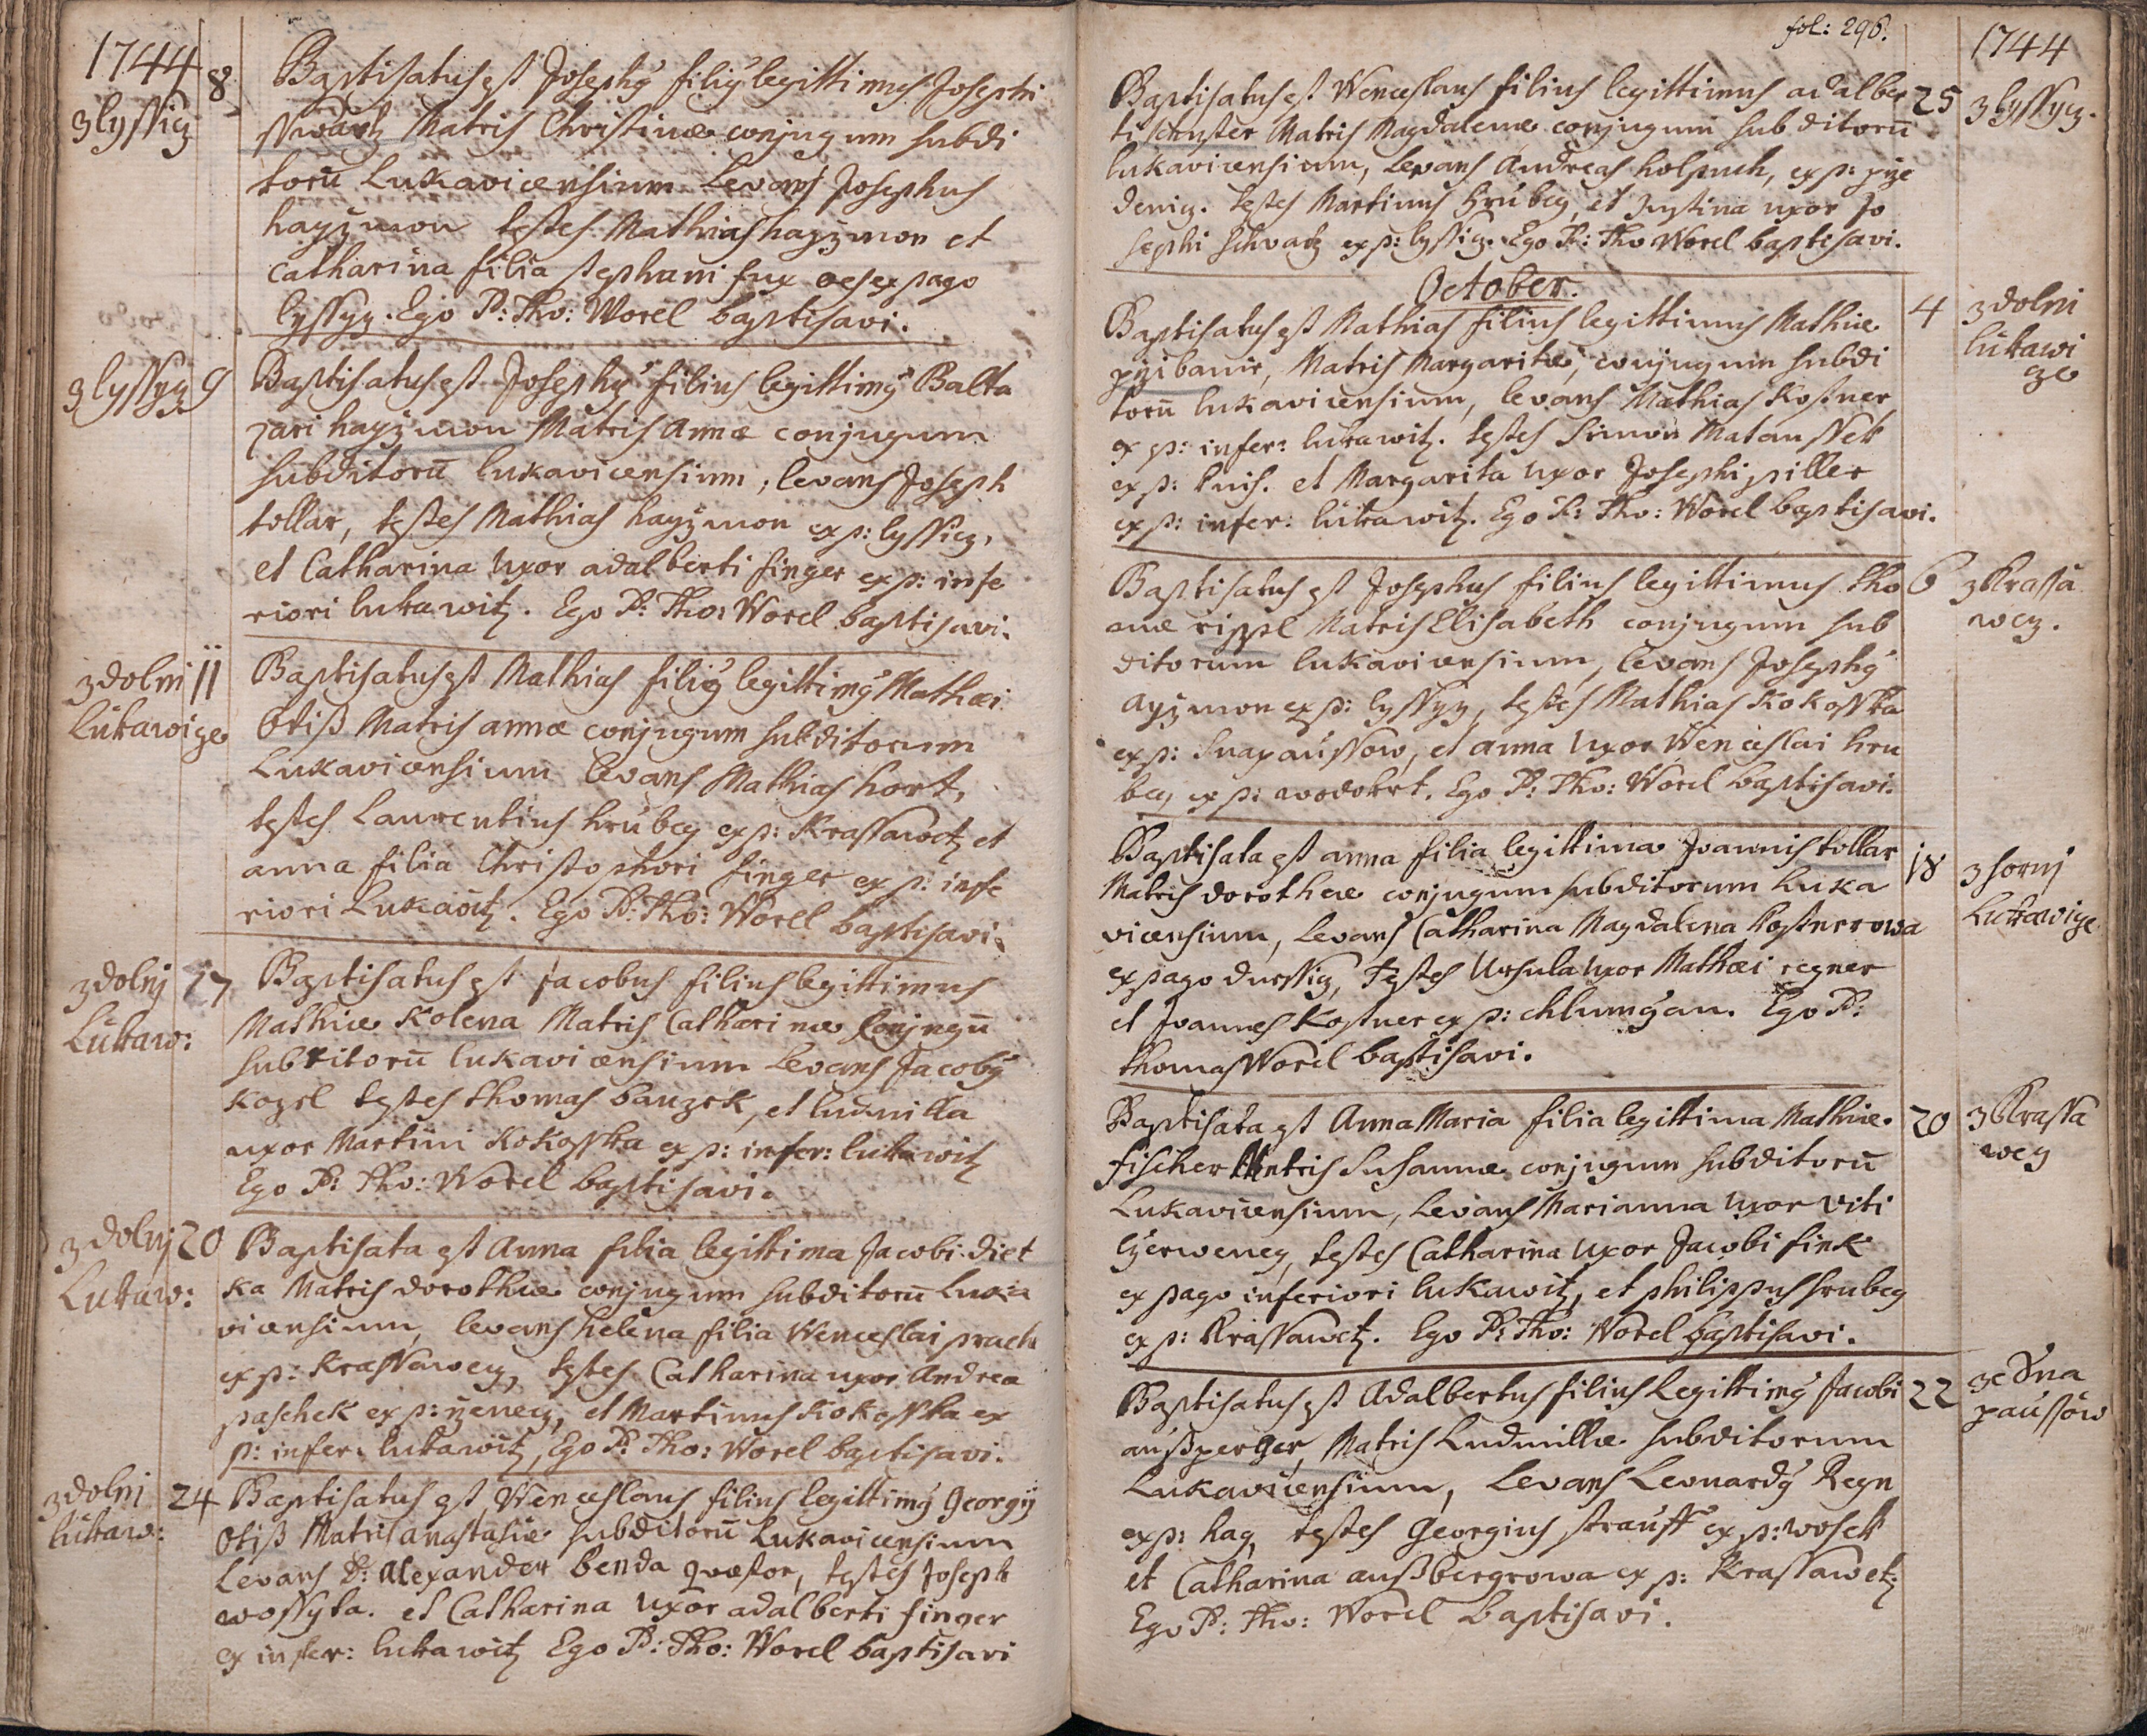 1744
z lyssicz
8
Baptisatus est Josephg filig legittimus Josephi
sswartz Matris Christinæ conjugum subdi
torū Lukavicensium Levans Josephus
hayzmon testes Mathias hayzmon et
Catharina filia stephani fux ex pago
lyssyz. Ego P: Tho: Worel baptisavi.
z lyssyz
9
Baptisatus est Josephg filius legittimg Balta
zari hayzmon Matris Annæ conjugum
subditorū lukavicensium, levans Joseph
tollar, testes Mathias hayzmon ex p: lyssicz,
et Catharina Uxor adalberti finger ex p: infe
riori lukawitz. Ego P: Tho: Worel baptisavi.
z dolni
Lukawize
11
Baptisatus est Mathias filig legittimg Mathæi
Otiß Matris annæ conjugum subditorum
Lukavicensium levans Mathias hort,
testes Laurentius hrubey ex p: Krassawetz et
anna filia Christophori finger ex p: infe
riori Lukawitz. Ego P: Tho: Worel baptisavi.
z dolnj
Lukaw:
17
Baptisatus est Jacobus filius legittimus
Mathiæ Kolena Matris Catharinæ Conjugū
subditorū lukavicensium Levans Jacobg
Kozel testes thomas bauzek, et ludmilla
uxor Martini Kokosska ex p: infer: lukawitz
Ego P: Tho: Worel baptisavi.
z dolnj
Lukaw:
20
Baptisata est Anna filia legittima Jacobi diet
ka Matris dorothæ conjugum subditorū Luka
vicensium, levans helena filia Wenceslai prach
ex p: Krassawecz, testes Catharina uxor Andrea
paschek ex p: zenecz, et Martinus Kokosska ex
p: infer: lukawitz, Ego P: Tho: Worel baptisavi.
z dolni
lukaw:
24
Baptisatus est Wenceslaus filius legittimg Georgij
Otiß Matris anastasiæ subditorū Lukavicensium
Levans D: Alexander benda quæstor, testes Joseph
wossyka. et Catharina Uxor adalberti finger
ex infer: lukawitz Ego P: Tho: Worel baptisavi
fol: 296.
1744
Baptisatus est Wenceslaus filius legittimus adalber
25
z lyssycz.
ti schuster Matris Magdalenæ conjugum subditorū
lukavicensium, Levans Andreas holpuch, ex p:
denicz. testes Martinus hrubey, et Justina uxor Jo
sephi schwartz ex p: lyssicz. Ego P: Tho Worel baptisavi.
October.
Baptisatus est Mathias filius legittimus Mathiæ
4
z dolni
lukawi
ze
pzibanie, Matris Margaritæ, conjugum subdi
torū lukavicensium, levans Mathias Kostner
ex p: infer: lukawitz. testes Simon Matausseck
ex p: knih. et Margarita Uxor Josephi piller
ex p: infer: lukawitz. Ego P: Tho: Worel baptisavi.
Baptisatus est Josephus filius legittimus tho
6
z Krassa
wcz.
mæ rippl Matris Elisabeth conjugum sub
ditorum lukavicensium, levans Josephg
ayzmon ex p: lyssyz, testes Mathias Kokosska
ex p: Snapaussow, et anna Uxor Wenceslai hru
bey, ex p: wodokrt. Ego P: Tho: Worel baptisavi.
Baptisata est anna filia legittima Joannis tollar
18
z hornj
Lukawize
Matris dorotheæ conjugum subditorum luka
vicensium, Levans Catharina Magdalena Kostnerowa
ex pago dnessicz, testes Ursula Uxor Mathæi regner
et Joannes Kostner ex p: chlumczan. Ego P:
thomas Worel baptisavi.
Baptisata est Anna Maria filia legittima Mathiæ
20
z Krassa
wcy
fischer Matris Susannæ conjugum subditorū
Lukavicensium, Levans Marianna Uxor Viti
czerweney, testes Catharina Uxor Jacobi fink
ex pago inferiori lukawitz, et philippus hrubey
ex p: Krassawetz. Ego P: Tho: Worel baptisavi.
Baptisatus est Adalbertus filius Legittimg Jacobi
22
ze Sna
paussow
außperger, Matris Ludmillæ subditorum
Lukavicensium, Levans Leonardg Regn
ex p: hag, testes Georgius strauss ex p: wosek
et Catharina außbergrowa ex p: Krassawetz
Ego P: Tho: Worel baptisavi.